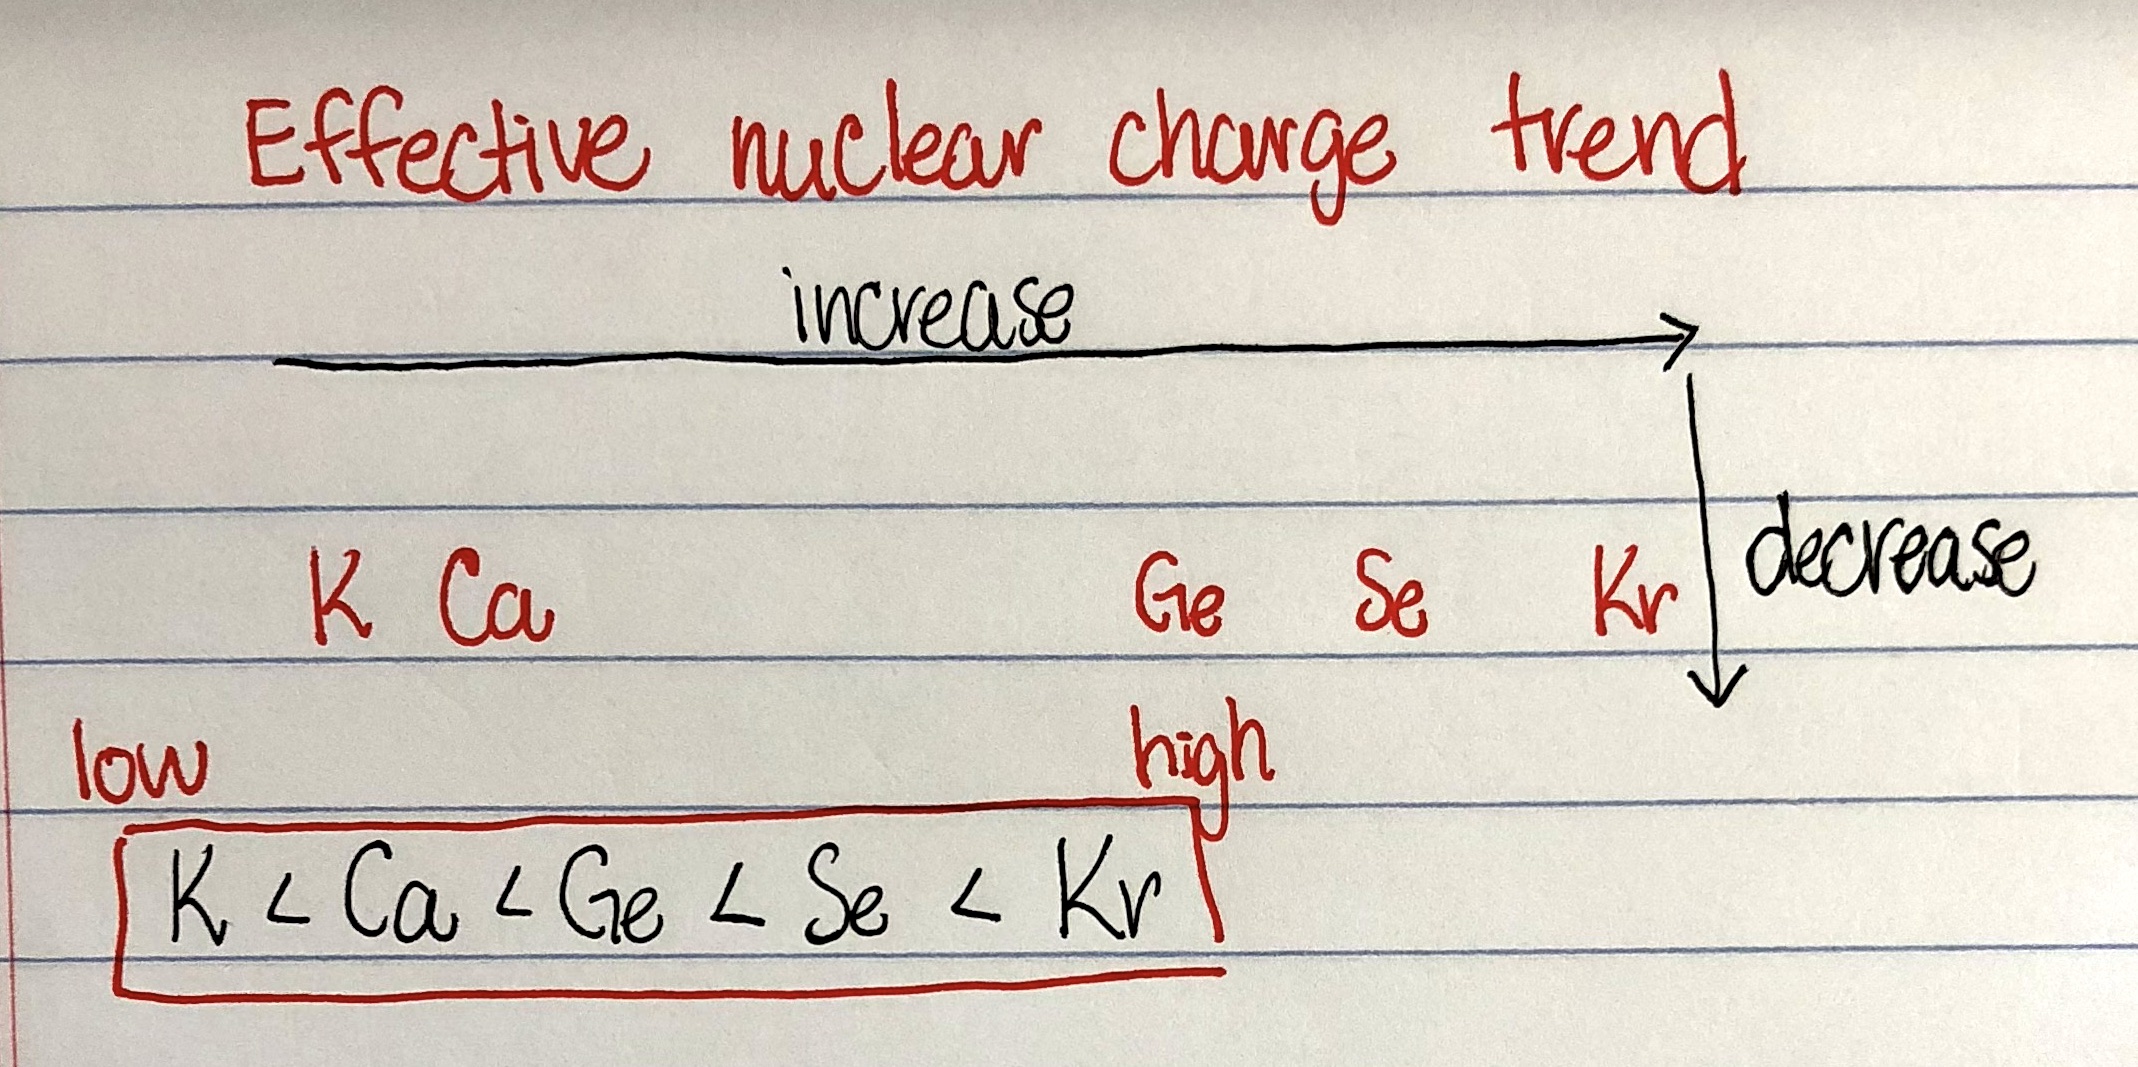 Effective nuclear charge trend
increase
decrease
K Ca Ge Se Kr
low high
K < Ca < Ge < Se < Kr